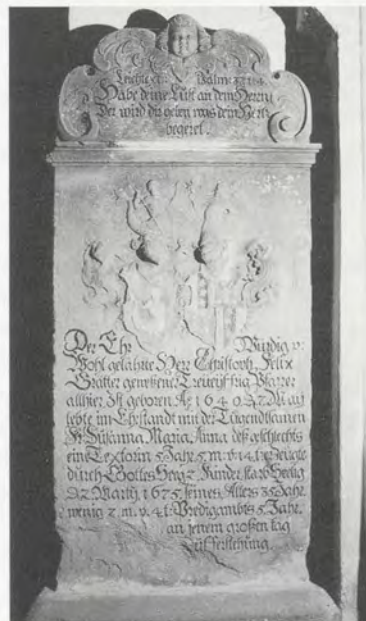 Leichtext Psalm: 37. v. 4.
Habe deine Lust an dem Herrn
Der wird dir geben was dein Hertz
begeret.
Der Ehr Würdig v:
Wohl gelährte Herr Christoph, Felix
Gratter geweßener Treueyffrig Pfarrer
allhier Ist geboren Aº 1640 27 May
lebte im Ehstandt mit der Tugendsamen
Fr Susanna Maria Anna deß geschlechts
eine Textorin 5 Jahr 5. m. v. 14. t.
durch Gottes 2. Kinder starb Seelig
D 2 Martij 1675 seines Alters 35 Jahr.
wenig 2. m. v. 4 t. Predigambts 5. Jahr.
an jenem großen tag
Aufferstehung.